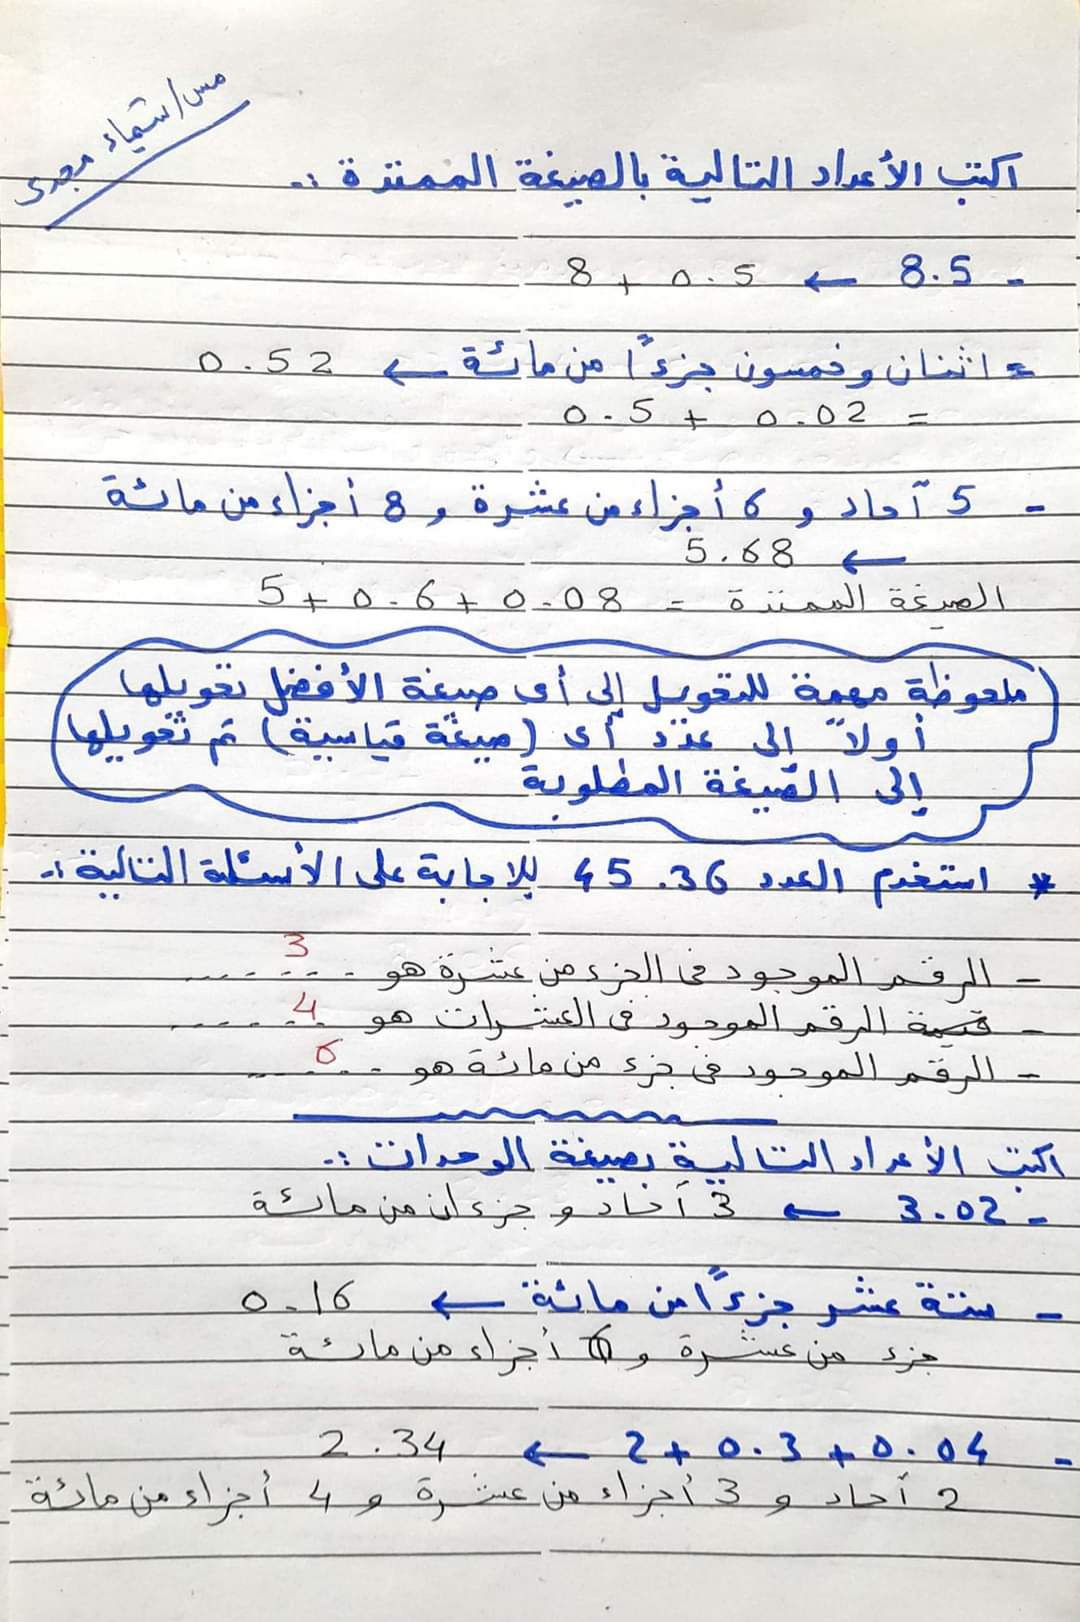 مس/شيماء مجدى
اكتب الأعداد التالية بالصيغة الممتدة :-
- 8.5 ← 8 + 0.5
= اثنان وخمسون جزءًا من مائة ← 0.52
= 0.5 + 0.02
- 5 آحاد و 6 أجزاء من عشرة و 8 أجزاء من مائة
← 5.68
الصيغة الممتدة = 5 + 0.6 + 0.08
ملحوظة مهمة للتحويل إلى أى صيغة الأفضل تحويلها
أولاً إلى عدد أى (صيغة قياسية) ثم تحويلها
إلى الصيغة المطلوبة
* استخدم العدد 45.36 للاجابة على الأسئلة التالية :-
- الرقم الموجود فى الجزء من عشرة هو 3
- قيمة الرقم الموجود فى العشرات هو 4
- الرقم الموجود فى جزء من مائة هو 6
اكتب الأعداد التالية بصيغة الوحدات :-
- 3.02 ← 3 آحاد و جزءان من مائة
- ستة عشر جزءًا من مائة ← 0.16
جزء من عشرة و 6 أجزاء من مائة
- 2 + 0.3 + 0.04 ← 2.34
2 آحاد و 3 أجزاء من عشرة و 4 أجزاء من مائة